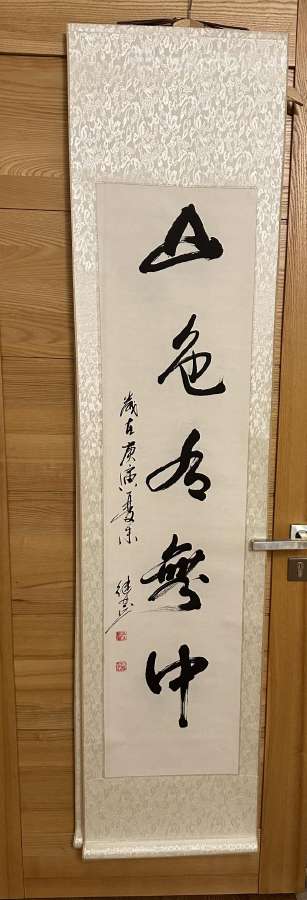 山色有無中
歲在庚寅夏